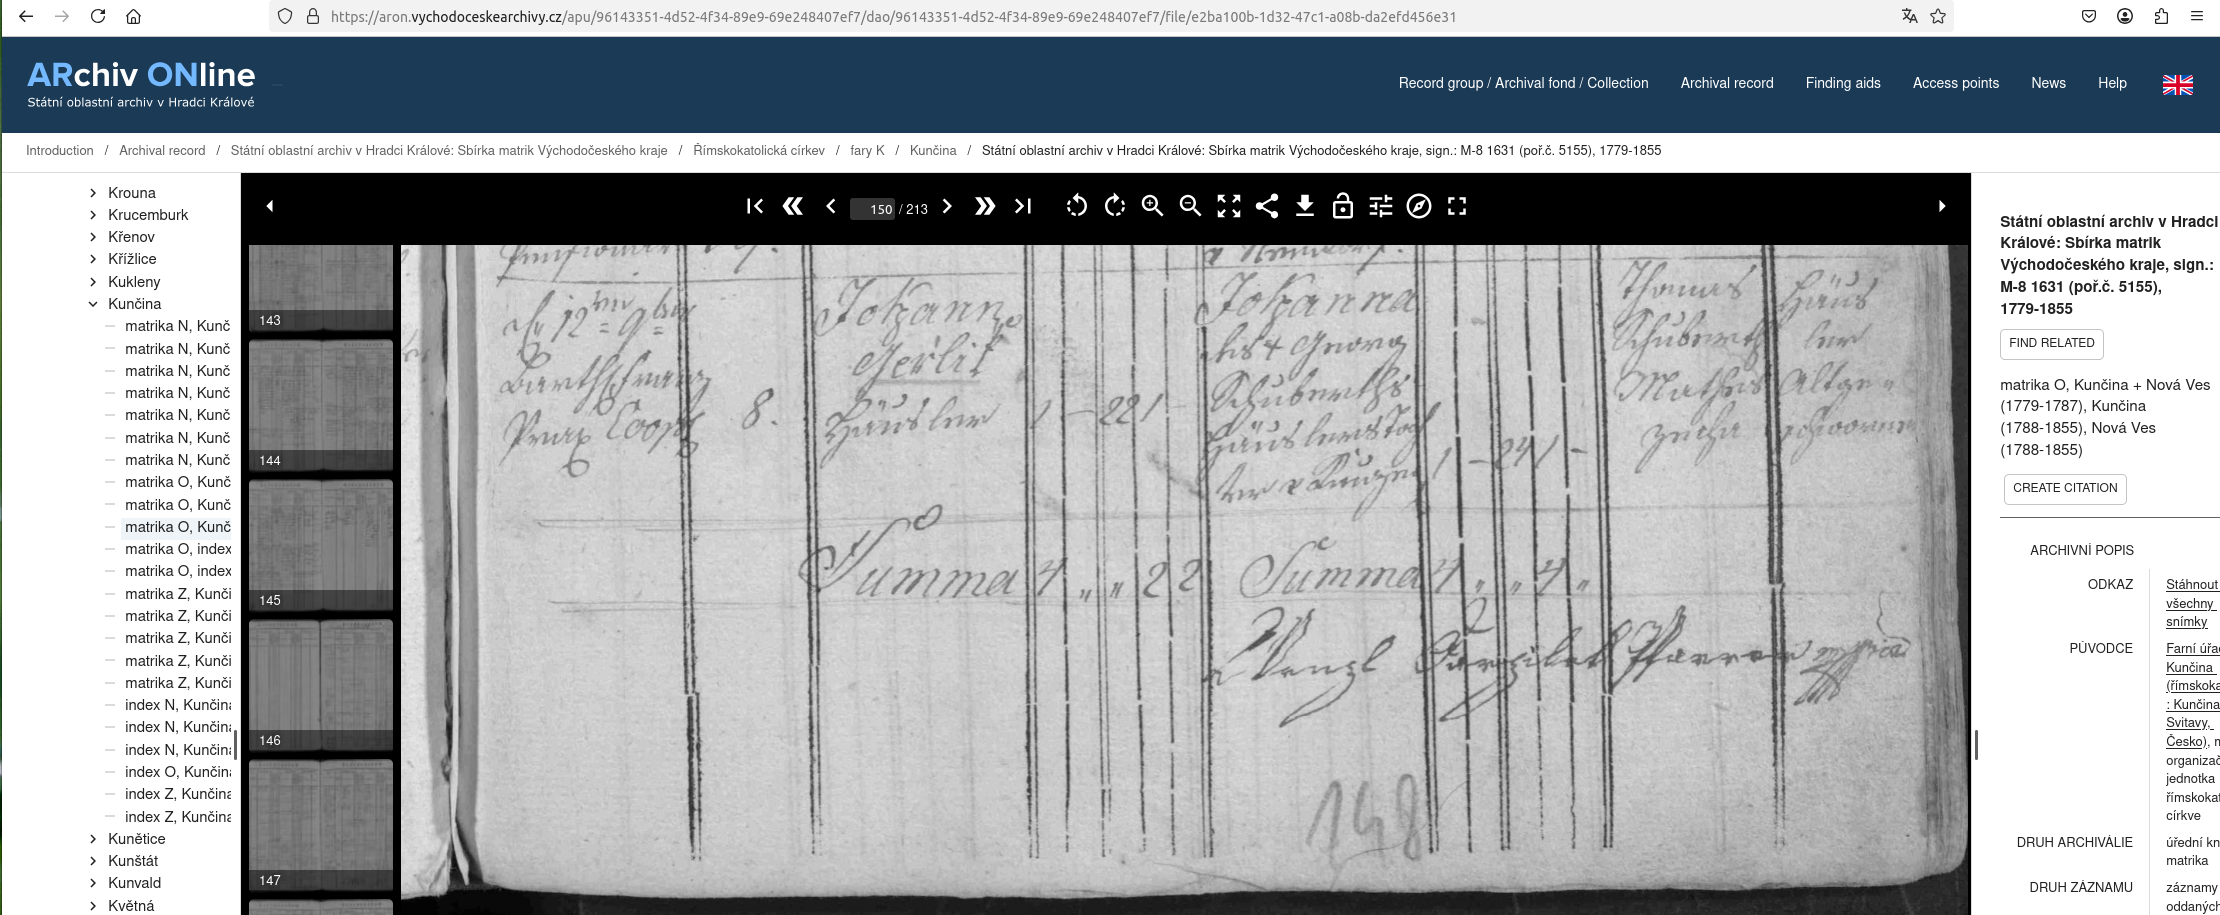 https://aron.vychodoceskearchivy.cz/apu/96143351-4d52-4f34-89e9-69e248407ef7/dao/96143351-4d52-4f34-89e9-69e248407ef7/file/e2ba100b-1d32-47c1-a08b-da2efd456e31
ARchiv ONline
Státní oblastní archiv v Hradci Králové
Record group / Archival fond / Collection
Archival record
Finding aids
Access points
News
Help
Introduction / Archival record / Státní oblastní archiv v Hradci Králové: Sbírka matrik Východočeského kraje / Římskokatolická církev / fary K / Kunčina / Státní oblastní archiv v Hradci Králové: Sbírka matrik Východočeského kraje, sign.: M-8 1631 (poř.č. 5155), 1779-1855
Krouna
Krucemburk
Křenov
Křížlice
Kukleny
Kunčina
matrika N, Kunč
matrika N, Kunč
matrika N, Kunč
matrika N, Kunč
matrika N, Kunč
matrika N, Kunč
matrika N, Kunč
matrika O, Kunč
matrika O, Kunč
matrika O, Kunč
matrika O, index
matrika O, index
matrika Z, Kunči
matrika Z, Kunči
matrika Z, Kunči
matrika Z, Kunči
matrika Z, Kunči
index N, Kunčina
index N, Kunčina
index N, Kunčina
index O, Kunčina
index Z, Kunčina
index Z, Kunčina
Kunětice
Kunštát
Kunvald
Květná
150 / 213
143
144
145
146
147
12
Johann
Gerlik
Häusler
8.
1 - 22 1
Johanna
Georg
Schuberths
Häuslers Toch
ter
1 - 24 1 -
Thomas
Schuberth
Mathes
Häus
ler
Summa 4 " " 22
Summa 4 " " 4 "
Wenzl
Pfarrer
148
Státní oblastní archiv v Hradci
Králové: Sbírka matrik
Východočeského kraje, sign.:
M-8 1631 (poř.č. 5155),
1779-1855
FIND RELATED
matrika O, Kunčina + Nová Ves
(1779-1787), Kunčina
(1788-1855), Nová Ves
(1788-1855)
CREATE CITATION
ARCHIVNÍ POPIS
ODKAZ
Stáhnout
všechny
snímky
PŮVODCE
Farní úřa
Kunčina
(římskoka
: Kunčina
Svitavy,
Česko), n
organizač
jednotka
římskokat
církve
DRUH ARCHIVÁLIE
úřední kn
matrika
DRUH ZÁZNAMU
záznamy
oddaných